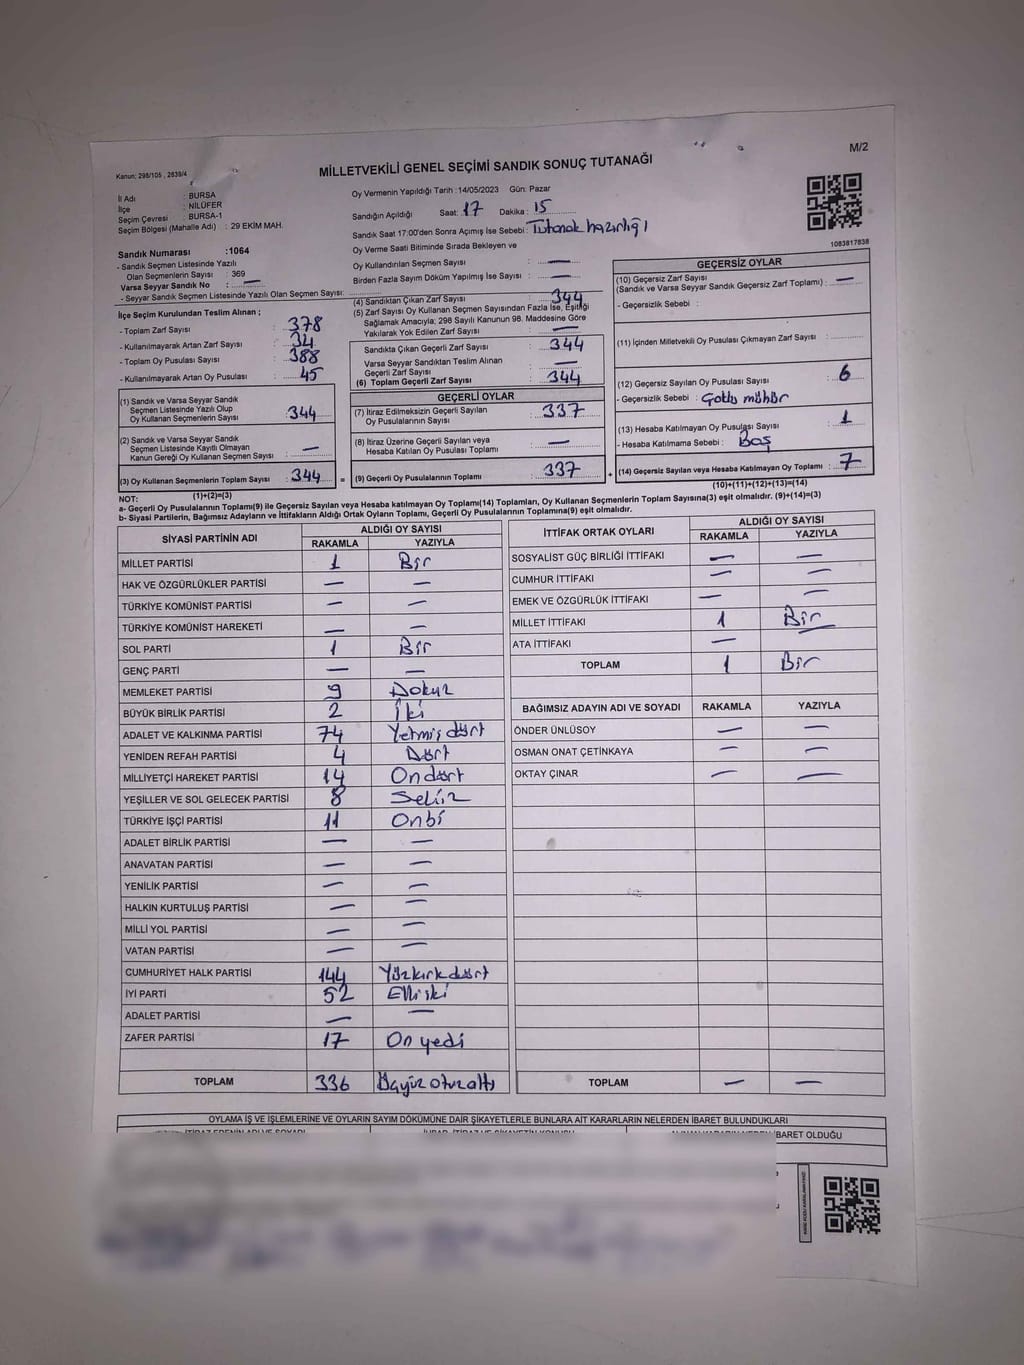 M/2
Kanun: 298/105 , 2839/4
MİLLETVEKİLİ GENEL SEÇİMİ SANDIK SONUÇ TUTANAĞI
İl Adı : BURSA
İlçe : NİLÜFER
Seçim Çevresi : BURSA-1
Seçim Bölgesi (Mahalle Adı) : 29 EKİM MAH.
Oy Vermenin Yapıldığı Tarih :14/05/2023 Gün: Pazar
Sandığın Açıldığı Saat: 17 Dakika : 15
Sandık Saat 17:00'den Sonra Açımış İse Sebebi : Tutanak hazırlığı
1083817838
Sandık Numarası :1064
- Sandık Seçmen Listesinde Yazılı
Olan Seçmenlerin Sayısı : 369
Varsa Seyyar Sandık No : —
- Seyyar Sandık Seçmen Listesinde Yazılı Olan Seçmen Sayısı:
Oy Verme Saati Bitiminde Sırada Bekleyen ve
Oy Kullandırılan Seçmen Sayısı : —
Birden Fazla Sayım Döküm Yapılmış İse Sayısı : —
İlçe Seçim Kurulundan Teslim Alınan ;
- Toplam Zarf Sayısı : 378
- Kullanılmayarak Artan Zarf Sayısı : 34
- Toplam Oy Pusulası Sayısı : 388
- Kullanılmayarak Artan Oy Pusulası : 45
(1) Sandık ve Varsa Seyyar Sandık
Seçmen Listesinde Yazılı Olup
Oy Kullanan Seçmenlerin Sayısı : 344
(2) Sandık ve Varsa Seyyar Sandık
Seçmen Listesinde Kayıtlı Olmayan
Kanun Gereği Oy Kullanan Seçmen Sayısı : —
(3) Oy Kullanan Seçmenlerin Toplam Sayısı : 344 =
(1)+(2)=(3)
(4) Sandıktan Çıkan Zarf Sayısı : 344
(5) Zarf Sayısı Oy Kullanan Seçmen Sayısından Fazla İse, Eşitliği
Sağlamak Amacıyla; 298 Sayılı Kanunun 98. Maddesine Göre
Yakılarak Yok Edilen Zarf Sayısı : —
Sandıkta Çıkan Geçerli Zarf Sayısı : 344
Varsa Seyyar Sandıktan Teslim Alınan
Geçerli Zarf Sayısı : —
(6) Toplam Geçerli Zarf Sayısı : 344
GEÇERLİ OYLAR
(7) İtiraz Edilmeksizin Geçerli Sayılan
Oy Pusulalarının Sayısı : 337
(8) İtiraz Üzerine Geçerli Sayılan veya
Hesaba Katılan Oy Pusulası Toplamı : —
(9) Geçerli Oy Pusulalarının Toplamı : 337 +
GEÇERSİZ OYLAR
(10) Geçersiz Zarf Sayısı
(Sandık ve Varsa Seyyar Sandık Geçersiz Zarf Toplamı) : —
- Geçersizlik Sebebi :
(11) İçinden Milletvekili Oy Pusulası Çıkmayan Zarf Sayısı :
(12) Geçersiz Sayılan Oy Pusulası Sayısı : 6
- Geçersizlik Sebebi : Çoklu mühür
(13) Hesaba Katılmayan Oy Pusulası Sayısı : 1
- Hesaba Katılmama Sebebi : Boş
(14) Geçersiz Sayılan veya Hesaba Katılmayan Oy Toplamı : 7
(10)+(11)+(12)+(13)=(14)
NOT:
a- Geçerli Oy Pusulalarının Toplamı(9) ile Geçersiz Sayılan veya Hesaba katılmayan Oy Toplamı(14) Toplamları, Oy Kullanan Seçmenlerin Toplam Sayısına(3) eşit olmalıdır. (9)+(14)=(3)
b- Siyasi Partilerin, Bağımsız Adayların ve İttifakların Aldığı Ortak Oyların Toplamı, Geçerli Oy Pusulalarının Toplamına(9) eşit olmalıdır.
SİYASİ PARTİNİN ADI ALDIĞI OY SAYISI
RAKAMLA YAZIYLA
MİLLET PARTİSİ 1 Bir
HAK VE ÖZGÜRLÜKLER PARTİSİ — —
TÜRKİYE KOMÜNİST PARTİSİ — —
TÜRKİYE KOMÜNİST HAREKETİ — —
SOL PARTİ 1 Bir
GENÇ PARTİ — —
MEMLEKET PARTİSİ 9 Dokuz
BÜYÜK BİRLİK PARTİSİ 2 İki
ADALET VE KALKINMA PARTİSİ 74 Yetmiş dört
YENİDEN REFAH PARTİSİ 4 Dört
MİLLİYETÇİ HAREKET PARTİSİ 14 Ondört
YEŞİLLER VE SOL GELECEK PARTİSİ 8 Sekiz
TÜRKİYE İŞÇİ PARTİSİ 11 Onbi
ADALET BİRLİK PARTİSİ — —
ANAVATAN PARTİSİ — —
YENİLİK PARTİSİ — —
HALKIN KURTULUŞ PARTİSİ — —
MİLLİ YOL PARTİSİ — —
VATAN PARTİSİ — —
CUMHURİYET HALK PARTİSİ 144 Yüzkırkdört
İYİ PARTİ 52 Elliiki
ADALET PARTİSİ — —
ZAFER PARTİSİ 17 On yedi
TOPLAM 336 Üçyüz otuzaltı
İTTİFAK ORTAK OYLARI ALDIĞI OY SAYISI
RAKAMLA YAZIYLA
SOSYALİST GÜÇ BİRLİĞİ İTTİFAKI — —
CUMHUR İTTİFAKI — —
EMEK VE ÖZGÜRLÜK İTTİFAKI — —
MİLLET İTTİFAKI 1 Bir
ATA İTTİFAKI — —
TOPLAM 1 Bir
BAĞIMSIZ ADAYIN ADI VE SOYADI RAKAMLA YAZIYLA
ÖNDER ÜNLÜSOY — —
OSMAN ONAT ÇETİNKAYA — —
OKTAY ÇINAR — —
TOPLAM — —
OYLAMA İŞ VE İŞLEMLERİNE VE OYLARIN SAYIM DÖKÜMÜNE DAİR ŞİKAYETLERLE BUNLARA AİT KARARLARIN NELERDEN İBARET BULUNDUKLARI
İBARET OLDUĞU